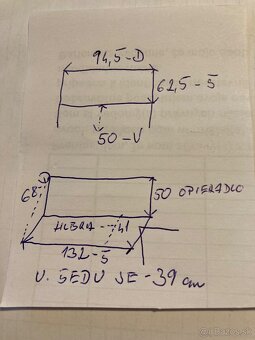 94,5-D
62,5-Š
50-V
68
50 OPIERADLO
HĹBKA-41
132-Š
V. SEDU JE -39 cm